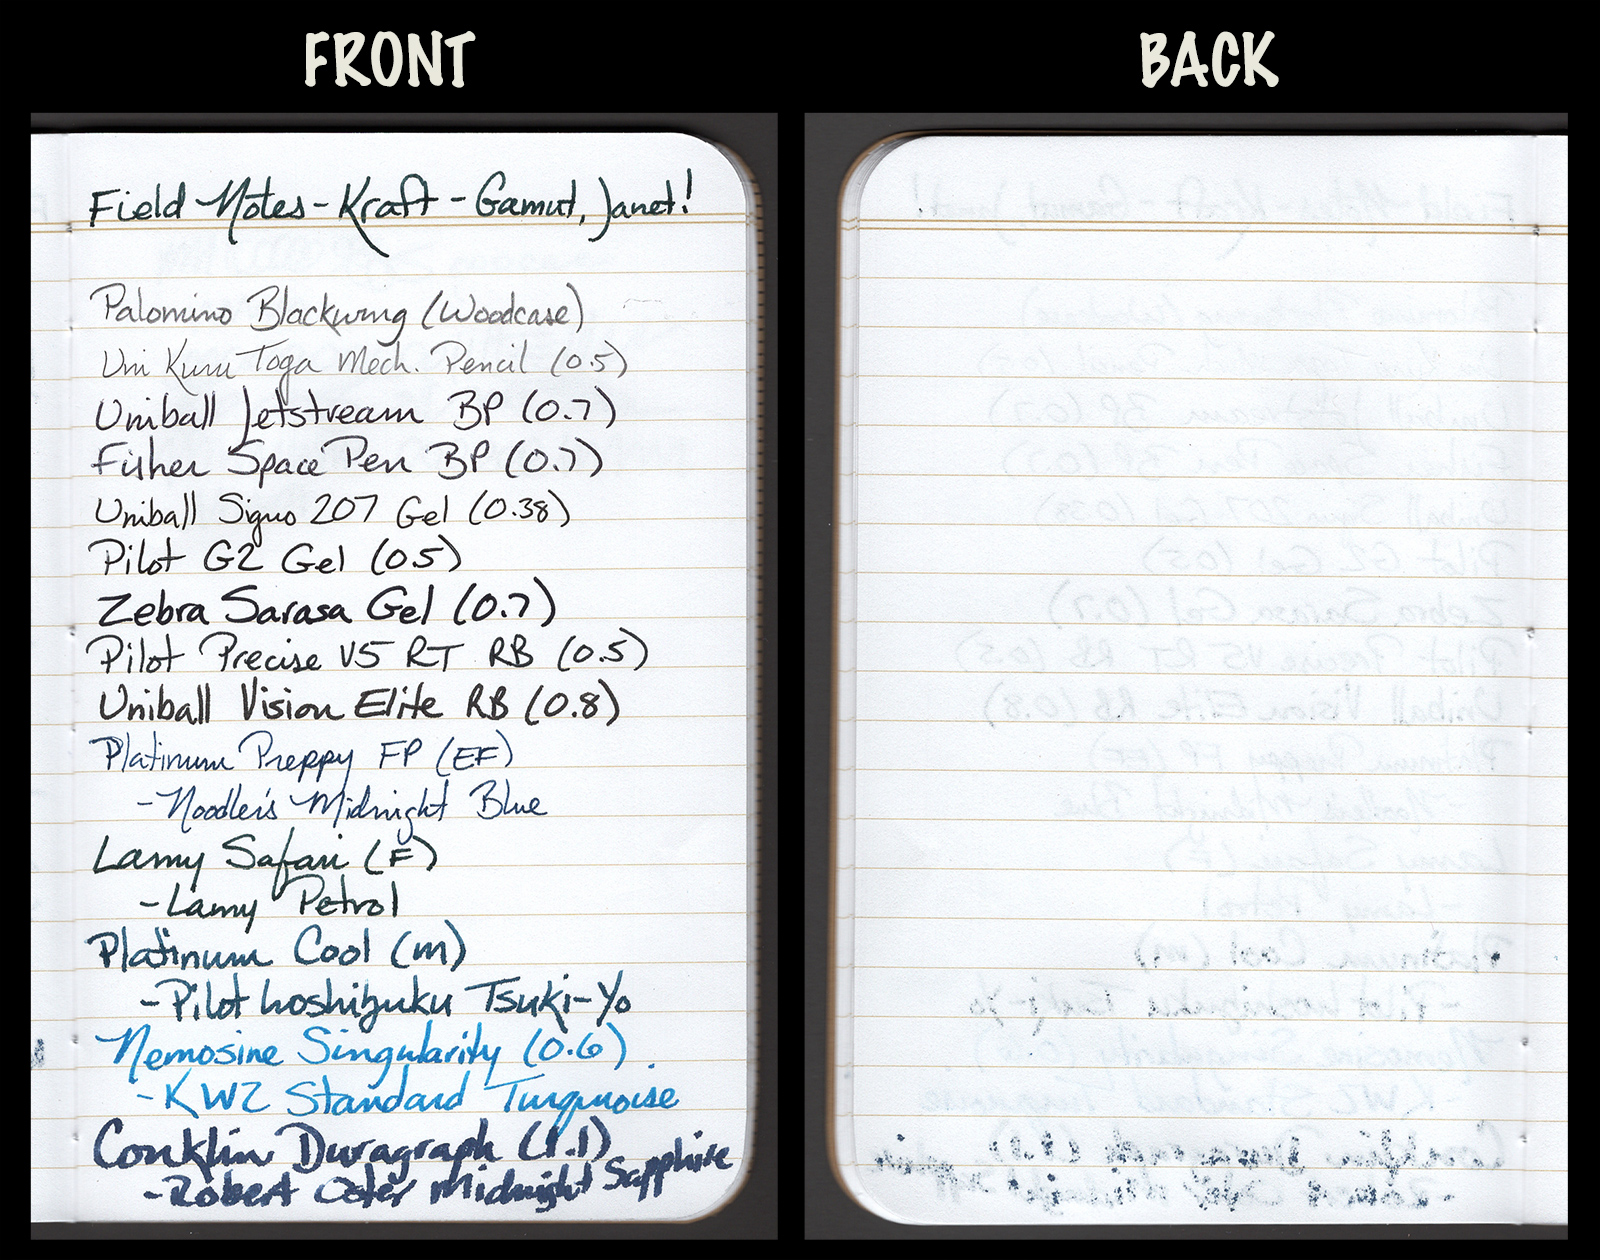 FRONT
BACK
Field Notes - Kraft - Gamut, Janet!
Palomino Blackwing (Woodcase)
Uni Kuru Toga Mech. Pencil (0.5)
Uniball Jetstream BP (0.7)
Fisher Space Pen BP (0.7)
Uniball Signo 207 Gel (0.38)
Pilot G2 Gel (0.5)
Zebra Sarasa Gel (0.7)
Pilot Precise V5 RT RB (0.5)
Uniball Vision Elite RB (0.8)
Platinum Preppy FP (EF)
- Noodler's Midnight Blue
Lamy Safari (F)
- Lamy Petrol
Platinum Cool (m)
- Pilot Iroshizuku Tsuki-Yo
Nemosine Singularity (0.6)
- KWZ Standard Turquoise
Conklin Duragraph (1.1)
- Robert Oster Midnight Sapphire